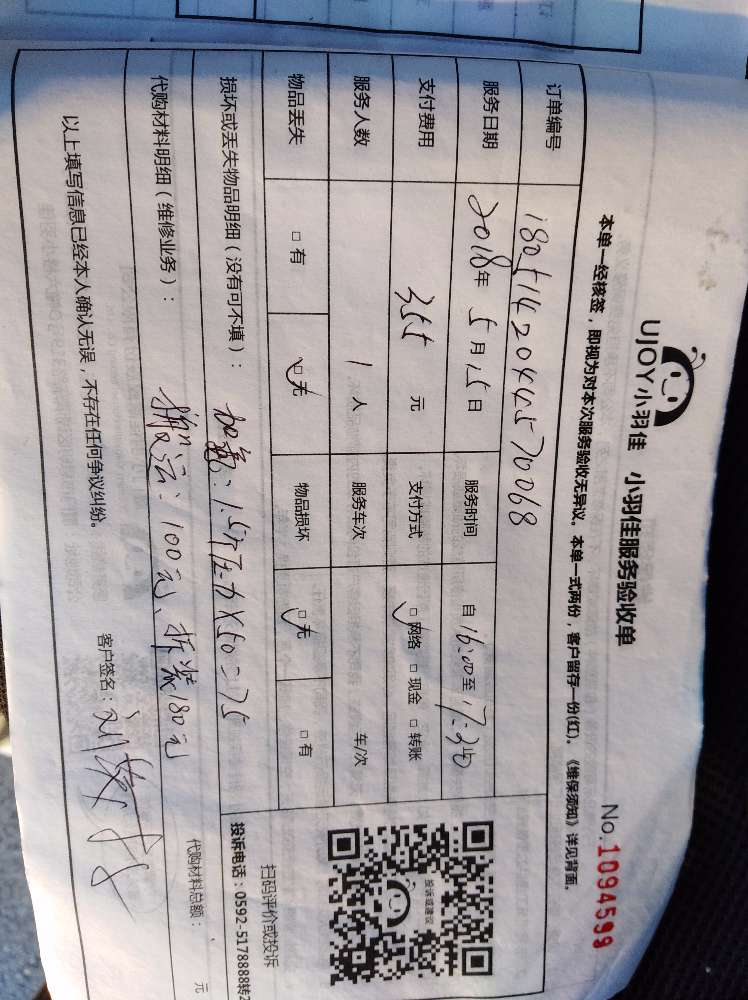 UJOY小羽佳 小羽佳服务验收单
No.1094599
本单一经核签，即视为对本次服务验收无异议。本单一式两份，客户留存一份(红)。《维保须知》详见背面。
订单编号 1805142044570068
服务日期 2018年 5月15日 服务时间 自16:00至17:30
支付费用 355 元 支付方式 □网络 □现金 □转账
服务人数 1人 服务车次 车/次
物品丢失 □有 □无 物品损坏 □无 □有
损坏或丢失物品明细（没有可不填）： 加氟：1.5个压力×50=75
代购材料明细（维修业务）： 搬运：100元、拆装180元
代购材料总额： 元
以上填写信息已经本人确认无误，不存在任何争议纠纷。 客户签名：刘
投诉或建议
扫码评价或投诉
投诉电话：0592-5178888转2